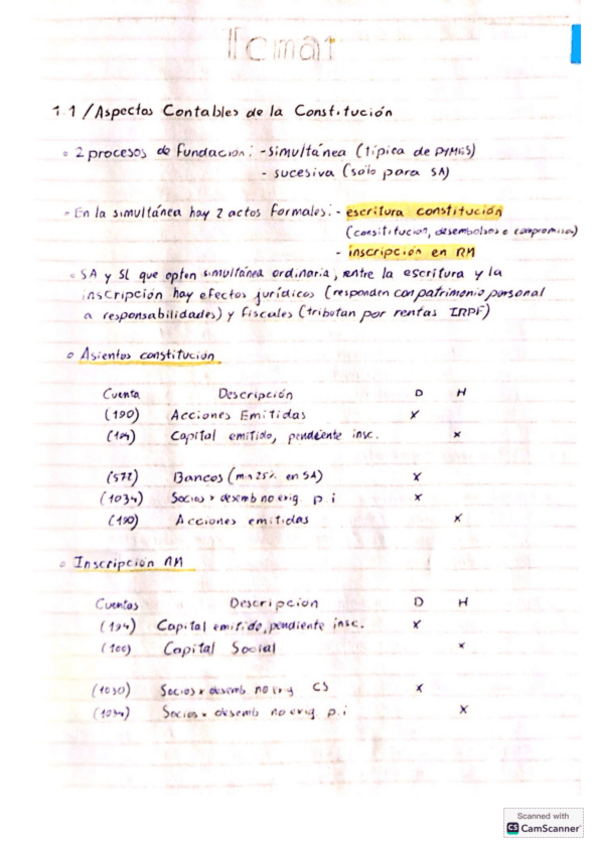 Tema 1
1.1 / Aspectos Contables de la Constitución
◦ 2 procesos de Fundación: - simultánea (típica de PYMES)
- sucesiva (sólo para SA)
◦ En la simultánea hay 2 actos Formales: - escritura constitución
(constitución, desembolsos o compromisos)
- inscripción en RM
◦ SA y SL que opten simultánea ordinaria, entre la escritura y la
inscripción hay efectos jurídicos (responden con patrimonio personal
a responsabilidades) y fiscales (tributan por rentas IRPF)
◦ Asientos constitución
Cuenta Descripción D H
(190) Acciones Emitidas x
(194) Capital emitido, pendiente insc. x
(572) Bancos (min 25% en SA) x
(1034) Socios x desemb no exig. p.i x
(190) Acciones emitidas x
◦ Inscripción RM
Cuentas Descripcion D H
(194) Capital emitido, pendiente insc. x
(100) Capital Social x
(1030) Socios x desemb no exig CS x
(1034) Socios x desemb no exig p.i x
Scanned with
CS CamScanner